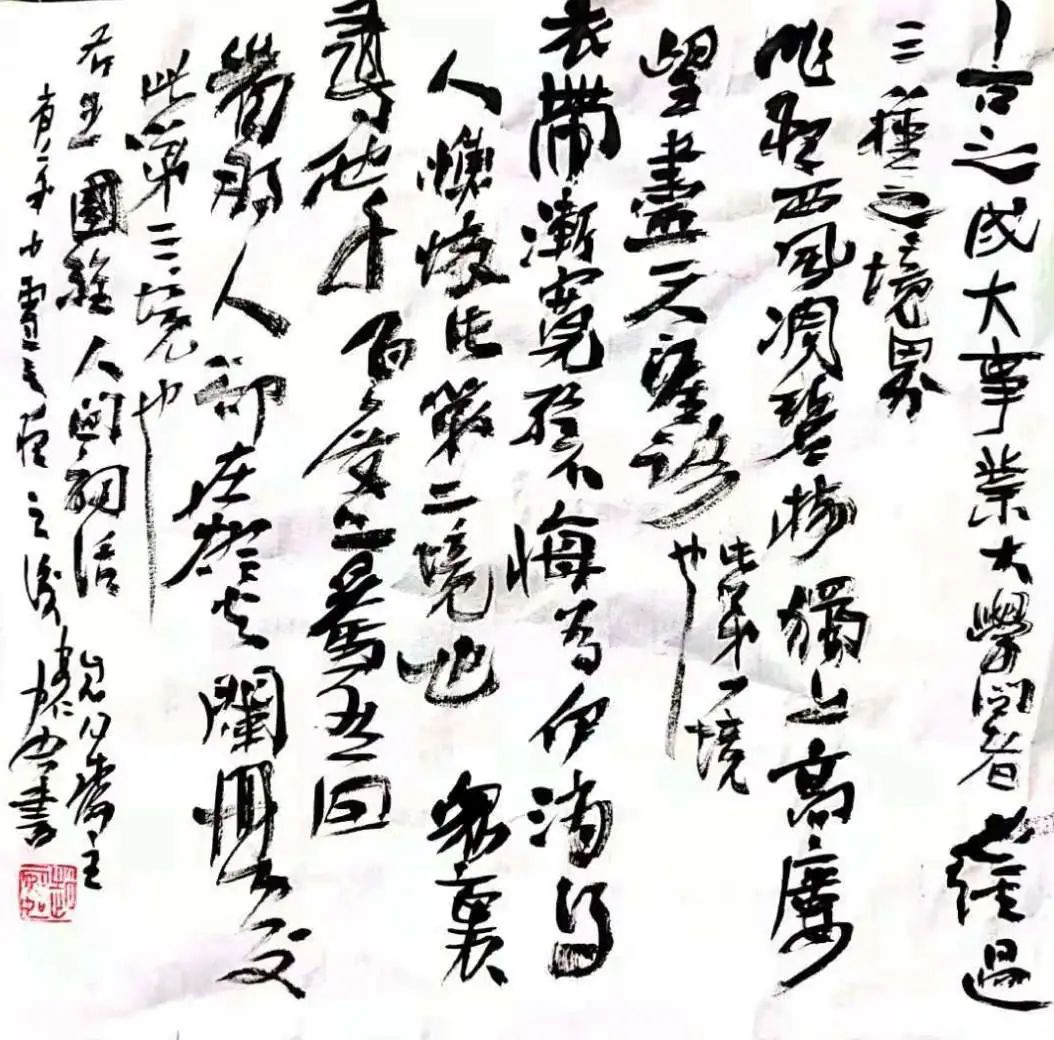 古之成大事業大學問者必經過
三種之境界
昨夜西風凋碧樹獨上高樓
望盡天涯路
此第一境
也
衣帶漸寬終不悔為伊消得
人憔悴此第二境也 眾裏
尋他千百度驀然回
首那人卻在燈火闌珊處
此第三境也
右王國維人間詞話
齋主
小雪之後
書